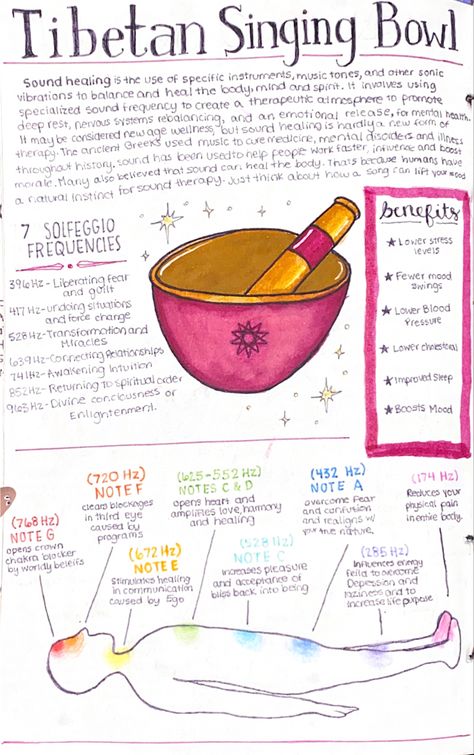 Tibetan Singing Bowl
Sound healing is the use of specific instruments, music tones, and other sonic
vibrations to balance and heal the body, mind and spirit. It involves using
specialized sound frequency to create a therapeutic atmosphere to promote
deep rest, nervous systems rebalancing, and an emotional release, for mental health.
It may be considered new age wellness, but sound healing is hardly a new form of
therapy. The ancient Greeks used music to cure medicine, mental disorders and illness
throughout history, sound has been used to help people work faster, influence and boost
morale. Many also believed that sound can heal the body. Thats because humans have
a natural instinct for sound therapy. Just think about how a song can lift your mood
7 SOLFEGGIO
FREQUENCIES
396Hz- Liberating fear
and guilt
417Hz- undoing situations
and force change
528Hz- Transformation and
Miracles
639Hz- Connecting Relationships
741Hz- Awakening Intuition
852Hz- Returning to spiritual order
963Hz- Divine conciousness or
Enlightenment.
Benefits
★ Lower stress
levels
★ Fewer mood
swings
★ Lower Blood
Pressure
★ Lower cholesteral
★ Improved sleep
★ Boosts Mood
(768 Hz)
NOTE G
opens crown
chakra blocker
by worldy beleifs
(720 Hz)
NOTE F
clears blockages
in third eye
caused by
programs
(672 Hz)
NOTE E
Stimulates healing
in communication
caused by Ego
(625-552 Hz)
NOTES C & D
opens heart and
amplifies love, harmony
and healing
(528 Hz)
NOTE C
increases pleasure
and acceptance of
bliss back into being
(432 Hz)
NOTE A
overcome Fear
and confusion
and realigns w/
true nature.
(285 Hz)
Influences energy
feild to overcome
Depression and
laziness and to
increase life purpose
(174 Hz)
Reduces your
physical pain
in entire body.